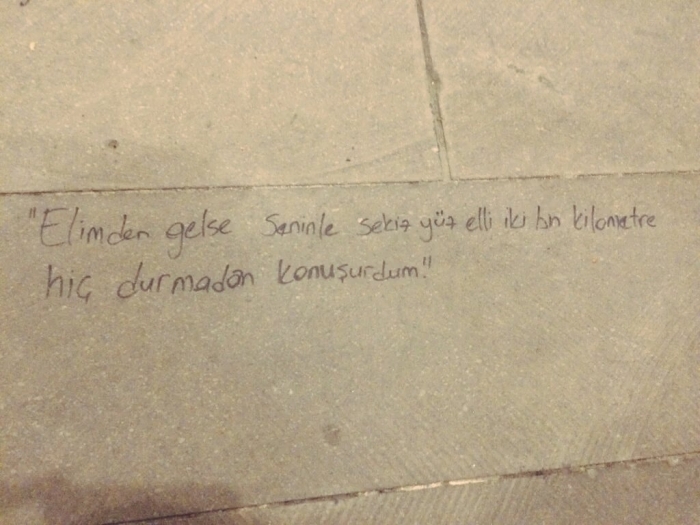 "Elimden gelse seninle sekiz yüz elli iki bin kilometre
hiç durmadan konuşurdum."